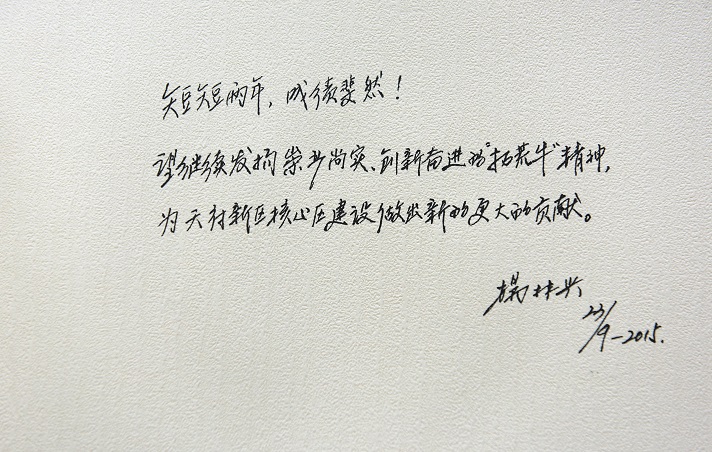 短短两年，成绩斐然！
望继续发扬崇尚务实、创新奋进的“拓荒牛”精神，
为天府新区核心区建设做出新的更大的贡献。
23/9-2015.